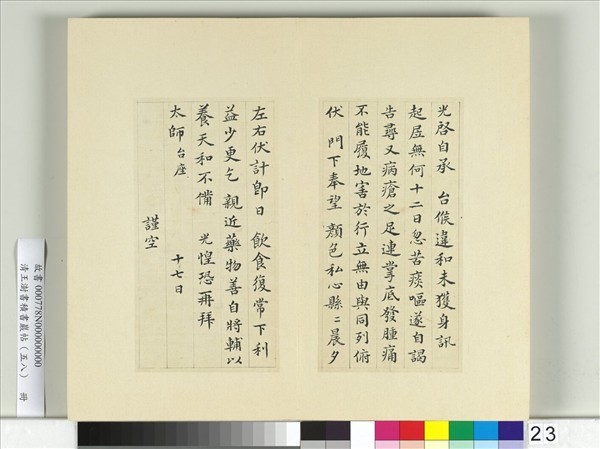 光啓自承　台候違和未獲身訊
起居無何十二日忽苦痰嘔遂自謁
告尋又病瘡之足連掌底發腫痛
不能履地害於行立無由與同列俯
伏　門下奉望　顏色私心縣〻晨夕
左右伏計即日　飲食復常下利
益少更乞　親近藥物善自將輔以
養天和不備　光惶恐再拜
太師　台座
謹空
十七日
故書000778N000000000
清王澍書積書巖帖（五八）　冊
23